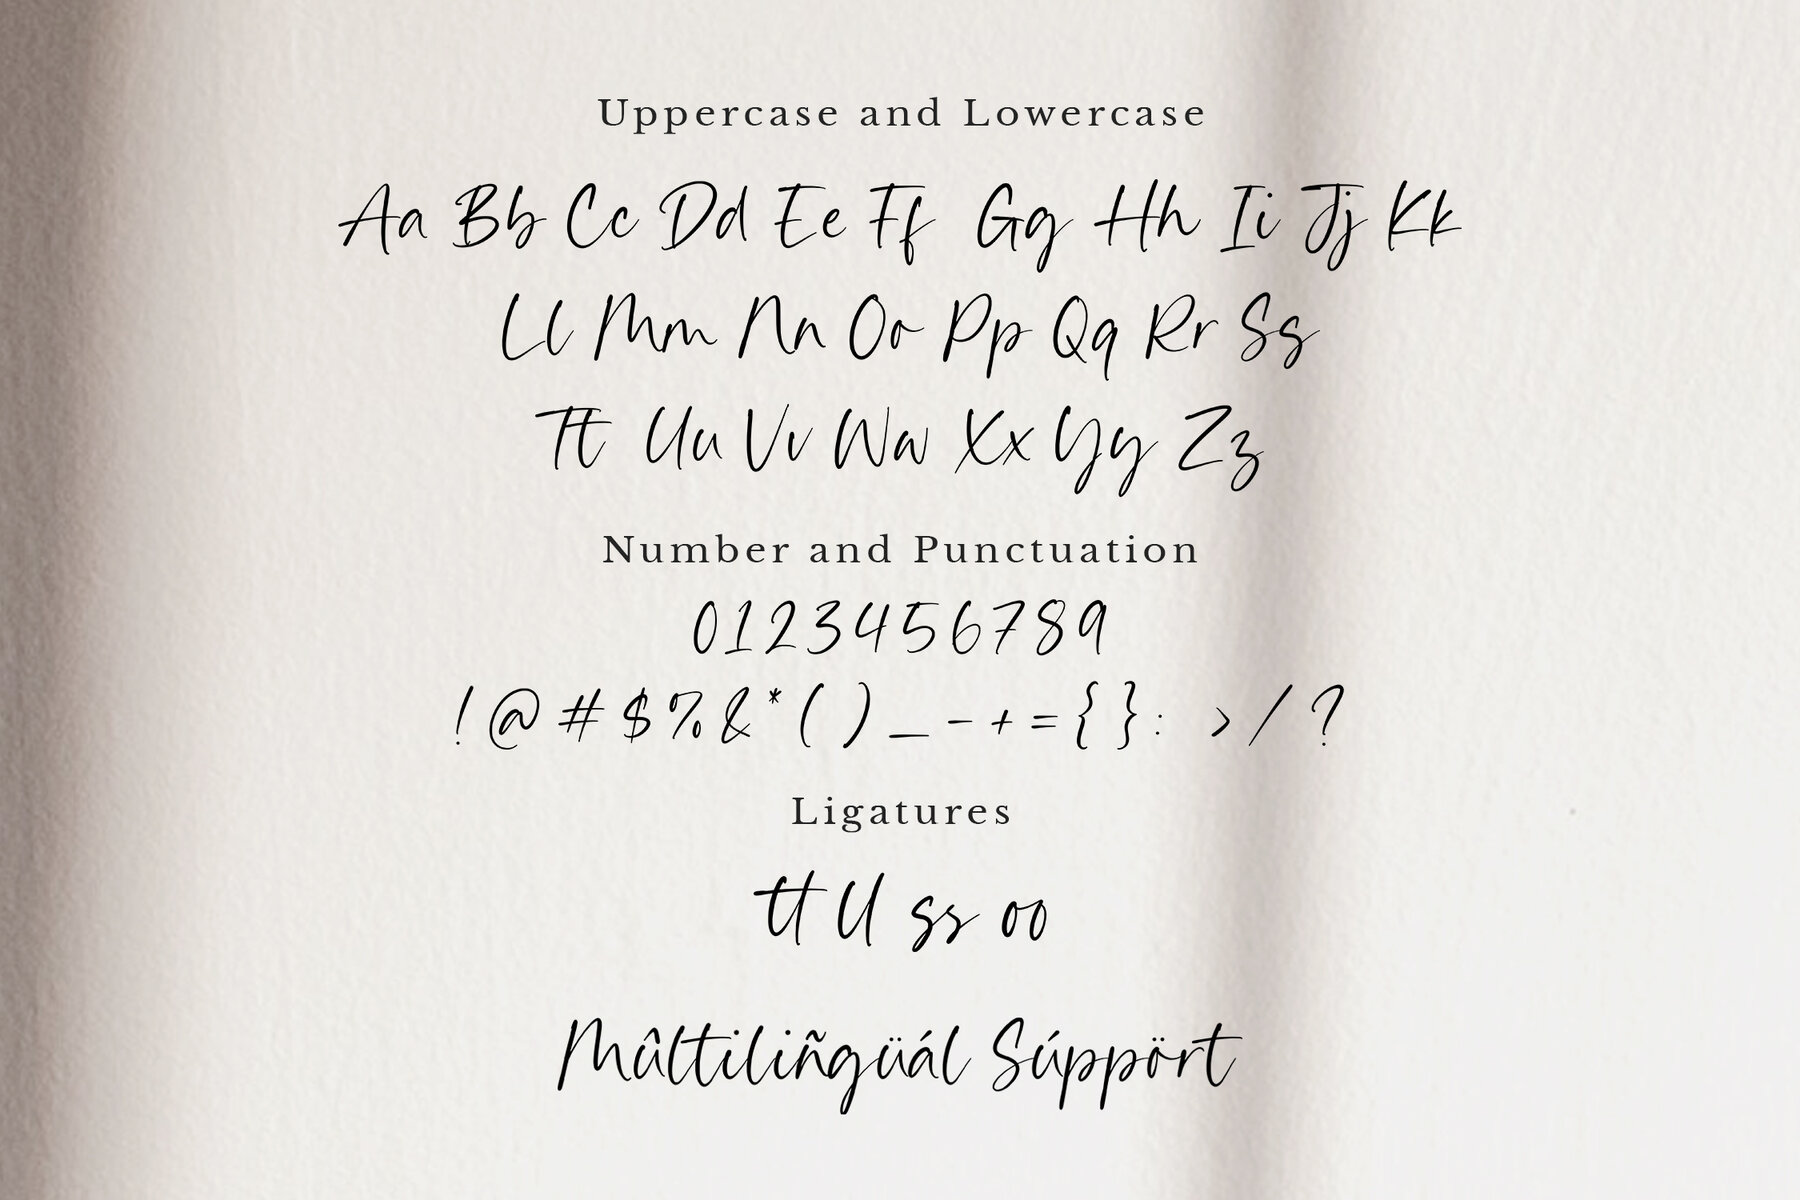 Uppercase and Lowercase
Aa Bb Cc Dd Ee Ff Gg Hh Ii Jj Kk
Ll Mm Nn Oo Pp Qq Rr Ss
Tt Uu Vv Ww Xx Yy Zz
Number and Punctuation
0123456789
! @ # $ % & * ( ) _ - + = { } : > / ?
Ligatures
tt ll ss oo
Mûltiliñgüál Súppört